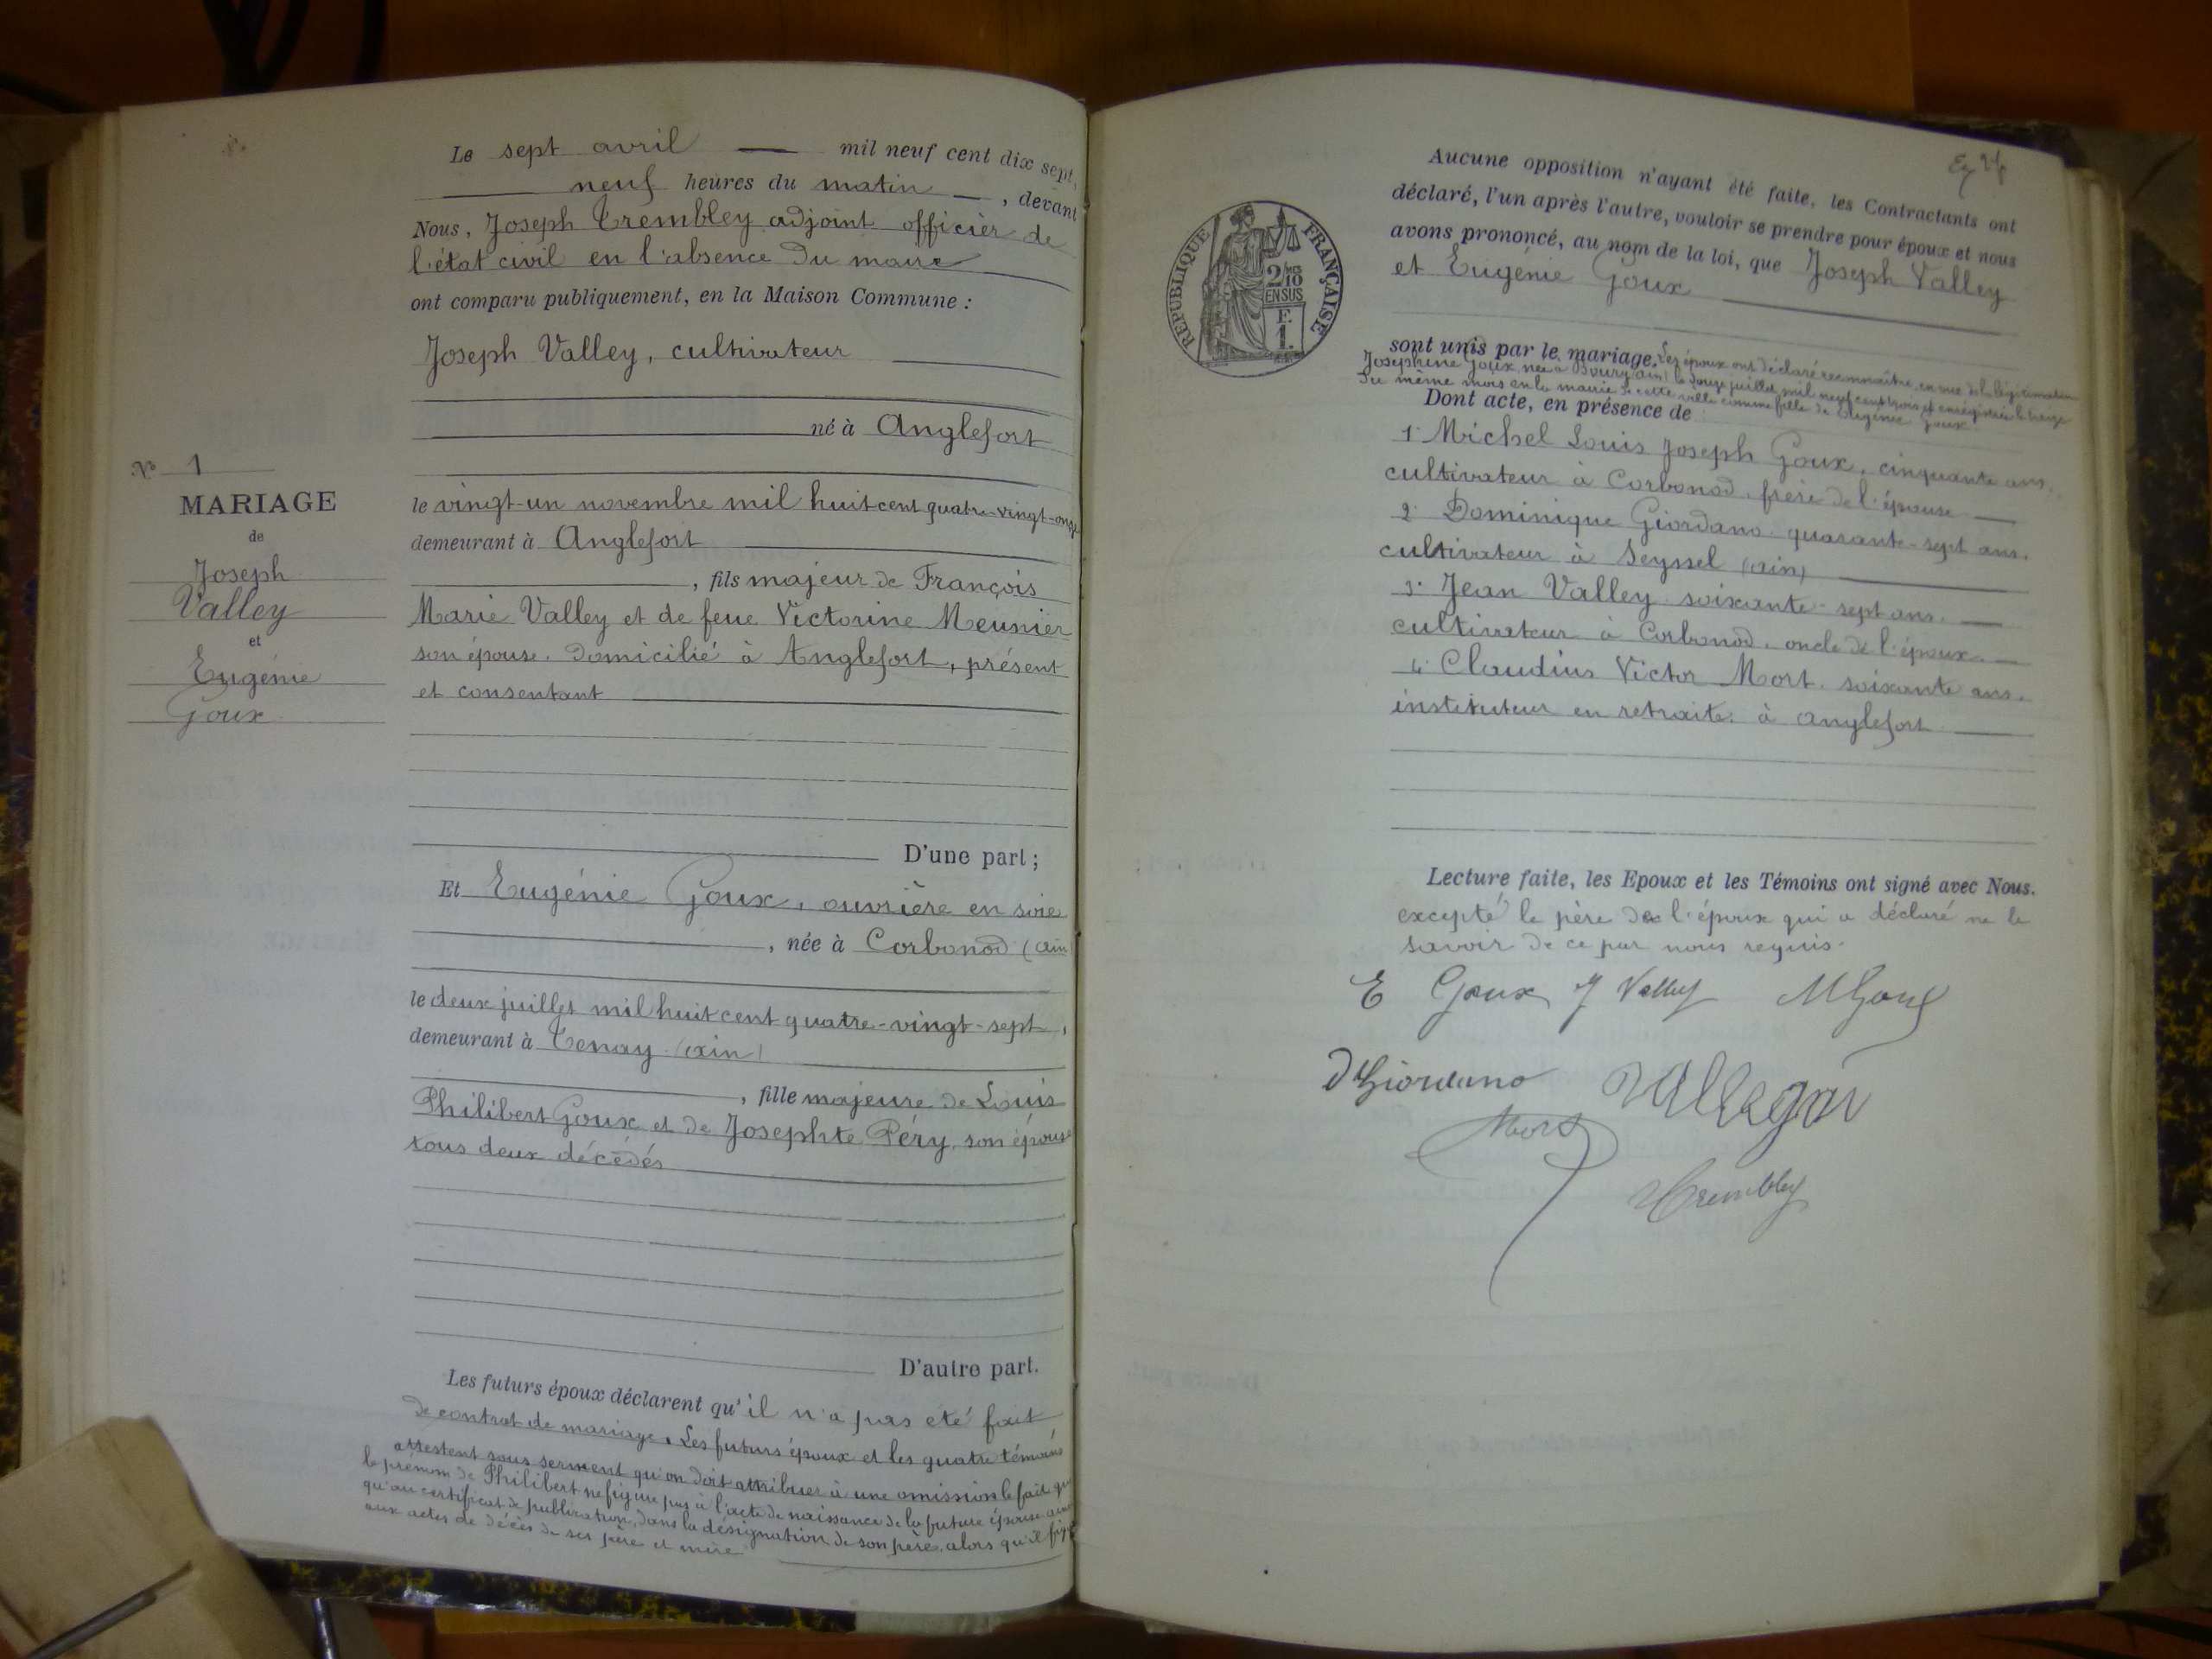 Le sept avril — mil neuf cent dix sept,
neuf heures du matin —, devant
Nous, Joseph Trembley adjoint officier de
l'état civil en l'absence du maire
ont comparu publiquement, en la Maison Commune :
Joseph Valley, cultivateur
né à Anglefort
N° 1
MARIAGE
de
Joseph
Valley
et
Eugénie
Goux
le vingt-un novembre mil huit cent quatre-vingt-onze
demeurant à Anglefort
, fils majeur de François
Marie Valley et de feue Victorine Meunier
son épouse. domicilié à Anglefort, présent
et consentant
D'une part ;
Et Eugénie Goux, ouvrière en soie
, née à Corbonod (ain
le deux juillet mil huit cent quatre-vingt-sept,
demeurant à Tenay (ain)
, fille majeure de Louis
Philibert Goux et de Josephte Péry, son épouse
tous deux décédés
D'autre part.
Les futurs époux déclarent qu'il n'a pas été fait
de contrat de mariage. Les futurs époux et les quatre témoins
attestent sous serment qu'on doit attribuer à une omission le fait que
le prénom de Philibert ne figure pas à l'acte de naissance de la future épouse
qu'au certificat de publication, dans la désignation de son père, alors qu'il
aux actes de décès de ses père et mère
Aucune opposition n'ayant été faite, les Contractants ont
déclaré, l'un après l'autre, vouloir se prendre pour époux et nous
avons prononcé, au nom de la loi, que Joseph Valley
et Eugénie Goux
RÉPUBLIQUE FRANÇAISE
2/10
EN SUS
F.
1.
sont unis par le mariage. Les époux ont déclaré reconnaître, en vue de la légitimation
Joséphine Goux, née à Bourg (ain) le douze juillet mil neuf cent trois et enregistrée le treize
du même mois en la mairie de cette ville comme fille de Eugénie Goux
Dont acte, en présence de
1° Michel Louis Joseph Goux, cinquante ans,
cultivateur à Corbonod, frère de l'épouse
2° Dominique Giordano, quarante-sept ans.
cultivateur à Seyssel (ain)
3° Jean Valley soixante-sept ans.
cultivateur à Corbonod, oncle de l'époux.
4° Claudius Victor Mort. soixante ans.
instituteur en retraite, à Anglefort
Lecture faite, les Epoux et les Témoins ont signé avec Nous.
excepté le père de l'époux qui a déclaré ne le
savoir de ce par nous requis.
E Goux J Valley M Goux
D Giordano
Mort
Trembley